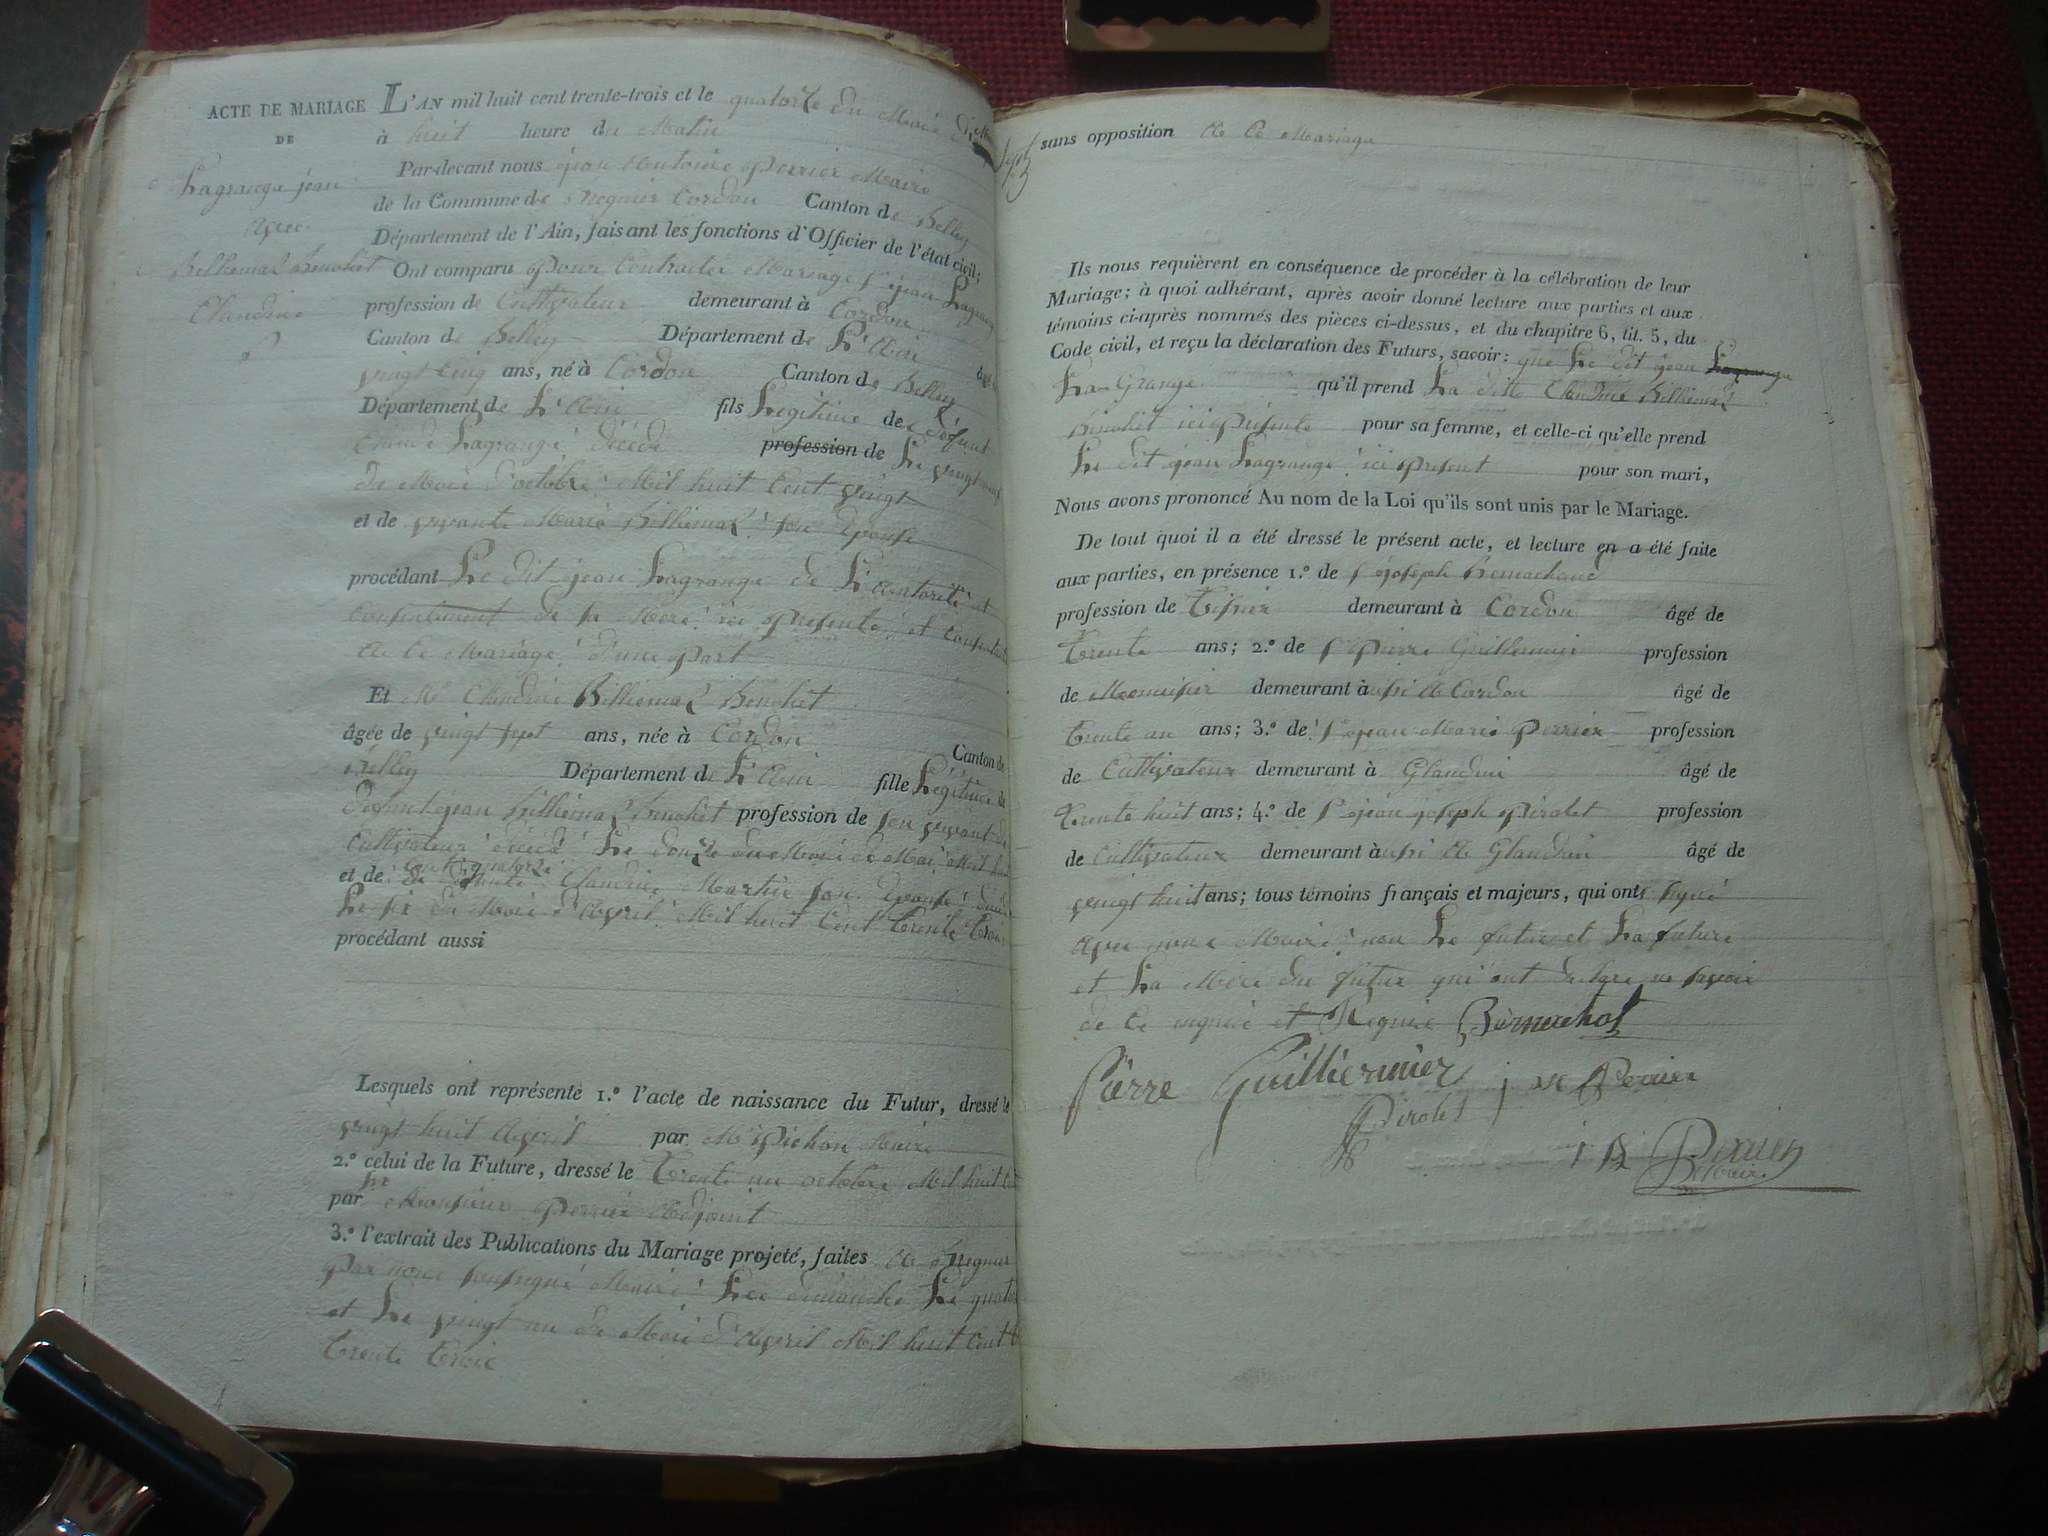 ACTE DE MARIAGE
DE
Lagrange jean
avec
Billiemaz Benohet
Claudine
L'AN mil huit cent trente-trois et le quatorze du Mois de
à huit heure du Matin
Par-devant nous jean Antoine Perrier Maire
de la Commune de Bregnier Cordon Canton de Belley
Département de l'Ain, faisant les fonctions d'Officier de l'état civil;
Ont comparu pour Contracter Mariage S jean Lagrange
profession de Cultivateur demeurant à Cordon
Canton de Belley Département de L'Ain âgé
vingt cinq ans, né à Cordon Canton de Belley
Département de L'Ain fils Legitime de défunt
Lagrange décédé profession de Le vingt
du Mois d'octobre Mil huit Cent vingt
et de vivante Marie Billiemaz son Epouse
procédant Le dit jean Lagrange de L'autorité et
Consentement de sa Mere ici présente et
Mariage d'une part
Et Claudine Billiemaz Benohet
âgée de vingt sept ans, née à Cordon Canton de
Belley Département de L'Ain fille Légitime de
défunt jean Billiemaz Benohet profession de son vivant
Cultivateur décédé Le douze du Mois de Mai Mil
cent quatorze
et de défunte Claudine Martin son Epouse
Le six du Mois d'Avril Mil huit Cent trente trois
procédant aussi
Lesquels ont représenté 1.º l'acte de naissance du Futur, dressé le
vingt huit Avril par Mr Pichon Maire
2.º celui de la Future, dressé le trente un octobre Mil huit
par Monsieur Perrier Adjoint
3.º l'extrait des Publications du Mariage projeté, faites A Bregnier
Par nous soussigné Maire Les dimanche Le
et Le vingt un du Mois d'Avril Mil huit Cent
trente trois
sans opposition A Ce Mariage
Ils nous requièrent en conséquence de procéder à la célébration de leur
Mariage; à quoi adhérant, après avoir donné lecture aux parties et aux
témoins ci-après nommés des pièces ci-dessus, et du chapitre 6, tit. 5, du
Code civil, et reçu la déclaration des Futurs, savoir: que Le dit jean Lagrange
La Grange qu'il prend La dite Claudine Billiemaz
Benohet ici présente pour sa femme, et celle-ci qu'elle prend
Le dit jean Lagrange ici présent pour son mari,
Nous avons prononcé Au nom de la Loi qu'ils sont unis par le Mariage.
De tout quoi il a été dressé le présent acte, et lecture en a été faite
aux parties, en présence 1.º de S joseph
profession de Tissier demeurant à Cordon âgé de
Trente ans; 2.º de S Pierre Guilliermier profession
de Menuisier demeurant à aussi A Cordon âgé de
trente un ans; 3.º de S jean Marie Perrier profession
de Cultivateur demeurant à Glandieu âgé de
trente huit ans; 4.º de S jean joseph Pirolet profession
de Cultivateur demeurant à aussi A Glandieu âgé de
vingt huit ans; tous témoins français et majeurs, qui ont signé
avec nous Maire non Le futur et La future
et La Mère du futur qui ont declaré ne savoir
de ce enquis et Requis Bernachot
Pierre Guilliermier j m Perrier
Pirolet
j A Perrier
Maire